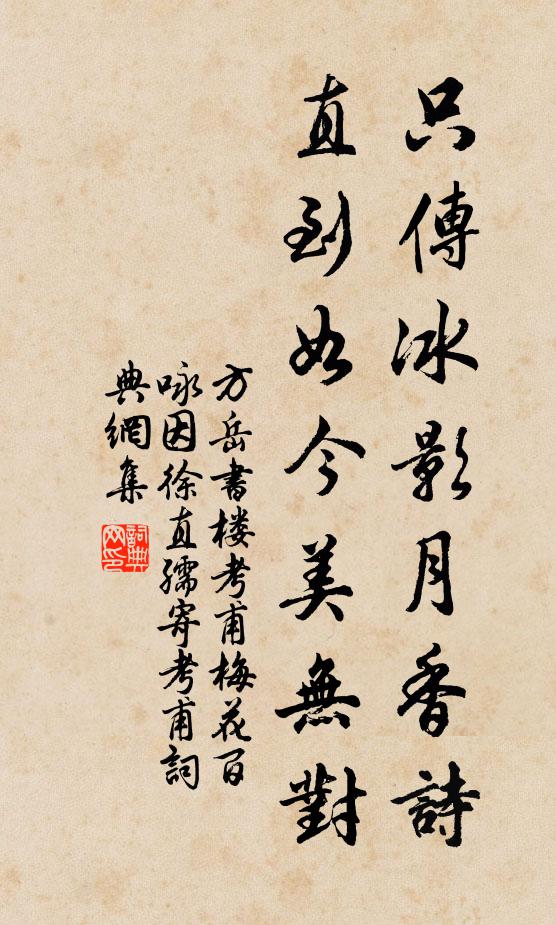 只傳冰影月香詩
直到如今美無對
方岳書楼考甫梅花百
咏因徐直孺寄考甫詞
典網集
詞典網印